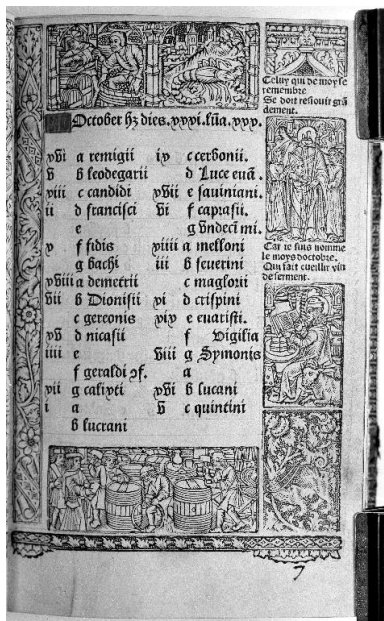 October hz dies. xxxi. lūa. xxx.
xvi a remigii
v b leodegarii
xiii c candidi
ii d francisci
e
x f fidis
g bachi
xviii a demetrii
vii b Dionisii
c gereonis
xv d nicasii
iiii e
f geraldi ɔf.
xii g calixti
i a
b lucrani
ix c cerbonii.
d Luce euā.
xvii e sauiniani.
vi f caprasii.
g vndeci mi.
xiiii a melloni
iii b seuerini
c maglorii
xi d crispini
xix e euaristi.
f Vigilia
viii g Symonis
a
xvi b lucani
v c quintini
Celuy qui de moy se
remembre
Se doit resiouir grā
dement.
Car ie suis nomme
le moys doctobre.
Qui fait cueillir vin
de serment.
7